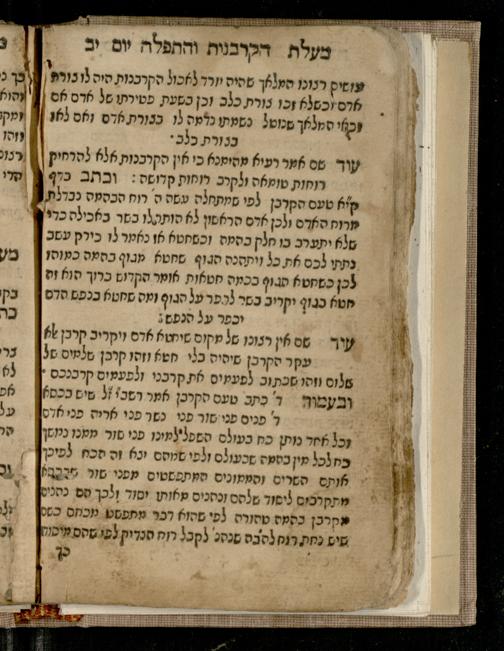 מעלת הקרבנות והתפלה יום יב
עושין רצונו המלאך שהיה יורד לאכול הקרבנות היה לו צורת
אדם וכשלא זכו צורת כלב וכן בשעת פטירתו של אדם אם
זכאי המלאך שנוטל נשמתו נדמה לו בצורת אדם ואם לאו
בצורת כלב
עוד שם אמר רעיא מהימנא כי אין הקרבנות אלא להרחיק
רוחות טומאה ולקרב רוחות קדושה: וכתב בדף
ק״א טעם הקרבן לפי שמתחלה עשה ה׳ רוח הבהמה נבדלת
מרוח האדם ולכן אדם הראשון לא הותר לו בשר באכילה כדי
שלא יתערב בו חלק בהמה וכשחטא אז נאמר לו כירק עשב
נתתי לכם את כל ויתהנה הגוף שחטא מגוף בהמה כמוהו
לכן כשחטא הגוף בכמה חטאות אומר הקדוש ברוך הוא זה
חטא בגוף יקריב בשר לכפר על הגוף ומה שחטא בנפש הדם
יכפר על הנפש:
עוד שם אין רצונו של מקום שיחטא אדם ויקריב קרבן אלא
עקר הקרבן שיהיה בלי חטא וזהו קרבן שלמים של
שלום וזהו שכתוב לפעמים את קרבני ולפעמים קרבנכם
ובעמוד ד׳ כתב טעם הקרבן אמר רשב״י ז״ל שיש בכסא
ד׳ פנים פני שור פני נשר פני אריה פני אדם
וכל אחד נותן כח בעולם השפל למינו פני שור ממנו נמשך
כח לכל מין בהמה שבעולם ולפי שמהם יצא זה הכח לפיכך
אותם השרים והממונים המתפשטים מפני שור שבכסא
מתקרבים ליסוד שלהם ונהנים מאותו יסוד ולכך הם נהנים
מקרבן בהמה טהורה לפי שהוא דבר מתפשט מכחם כשם
שיש נחת רוח להב״ה שנהנ׳ לקבל רוח הצדיק לפי שהם מיסודו
כך